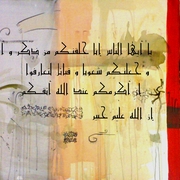 يا أيها الناس إنا خلقنكم من ذكر و أ
و جعلنكم شعوبا و قبائل لتعارفوا
إن أكرمكم عند الله أتقكم
إن الله عليم خبير